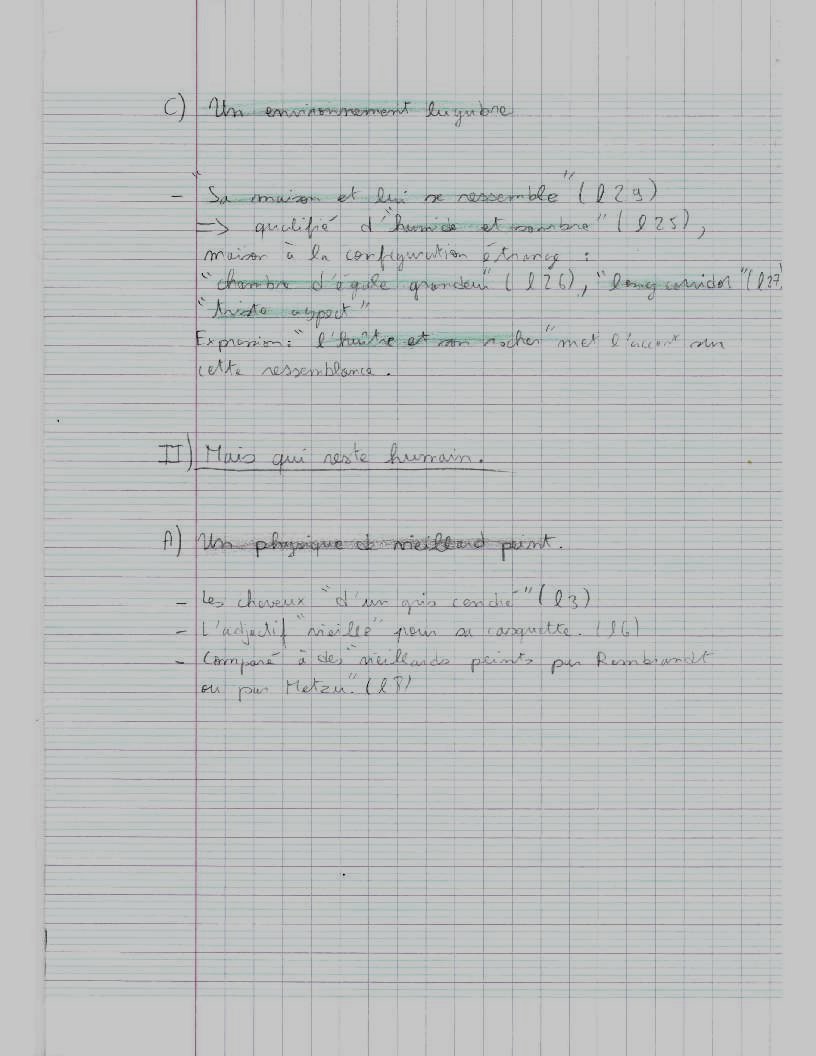 C) Un environnement lugubre
- "Sa maison et lui se ressemble" (l 29)
=> qualifié d'"humide et sombre" (l 25),
maison à la configuration étrange :
"chambre d'égale grandeur" (l 26), "long corridor" (l 27)
"triste aspect"
Expression : "l'huître et son rocher" met l'accent sur
cette ressemblance.
II) Mais qui reste humain.
A) Un physique de vieillard peint.
- Les cheveux "d'un gris cendré" (l 3)
- L'adjectif "vieille" pour sa casquette. (l 6)
- Comparé à des "vieillards peints par Rembrandt
ou par Metzu". (l 8)